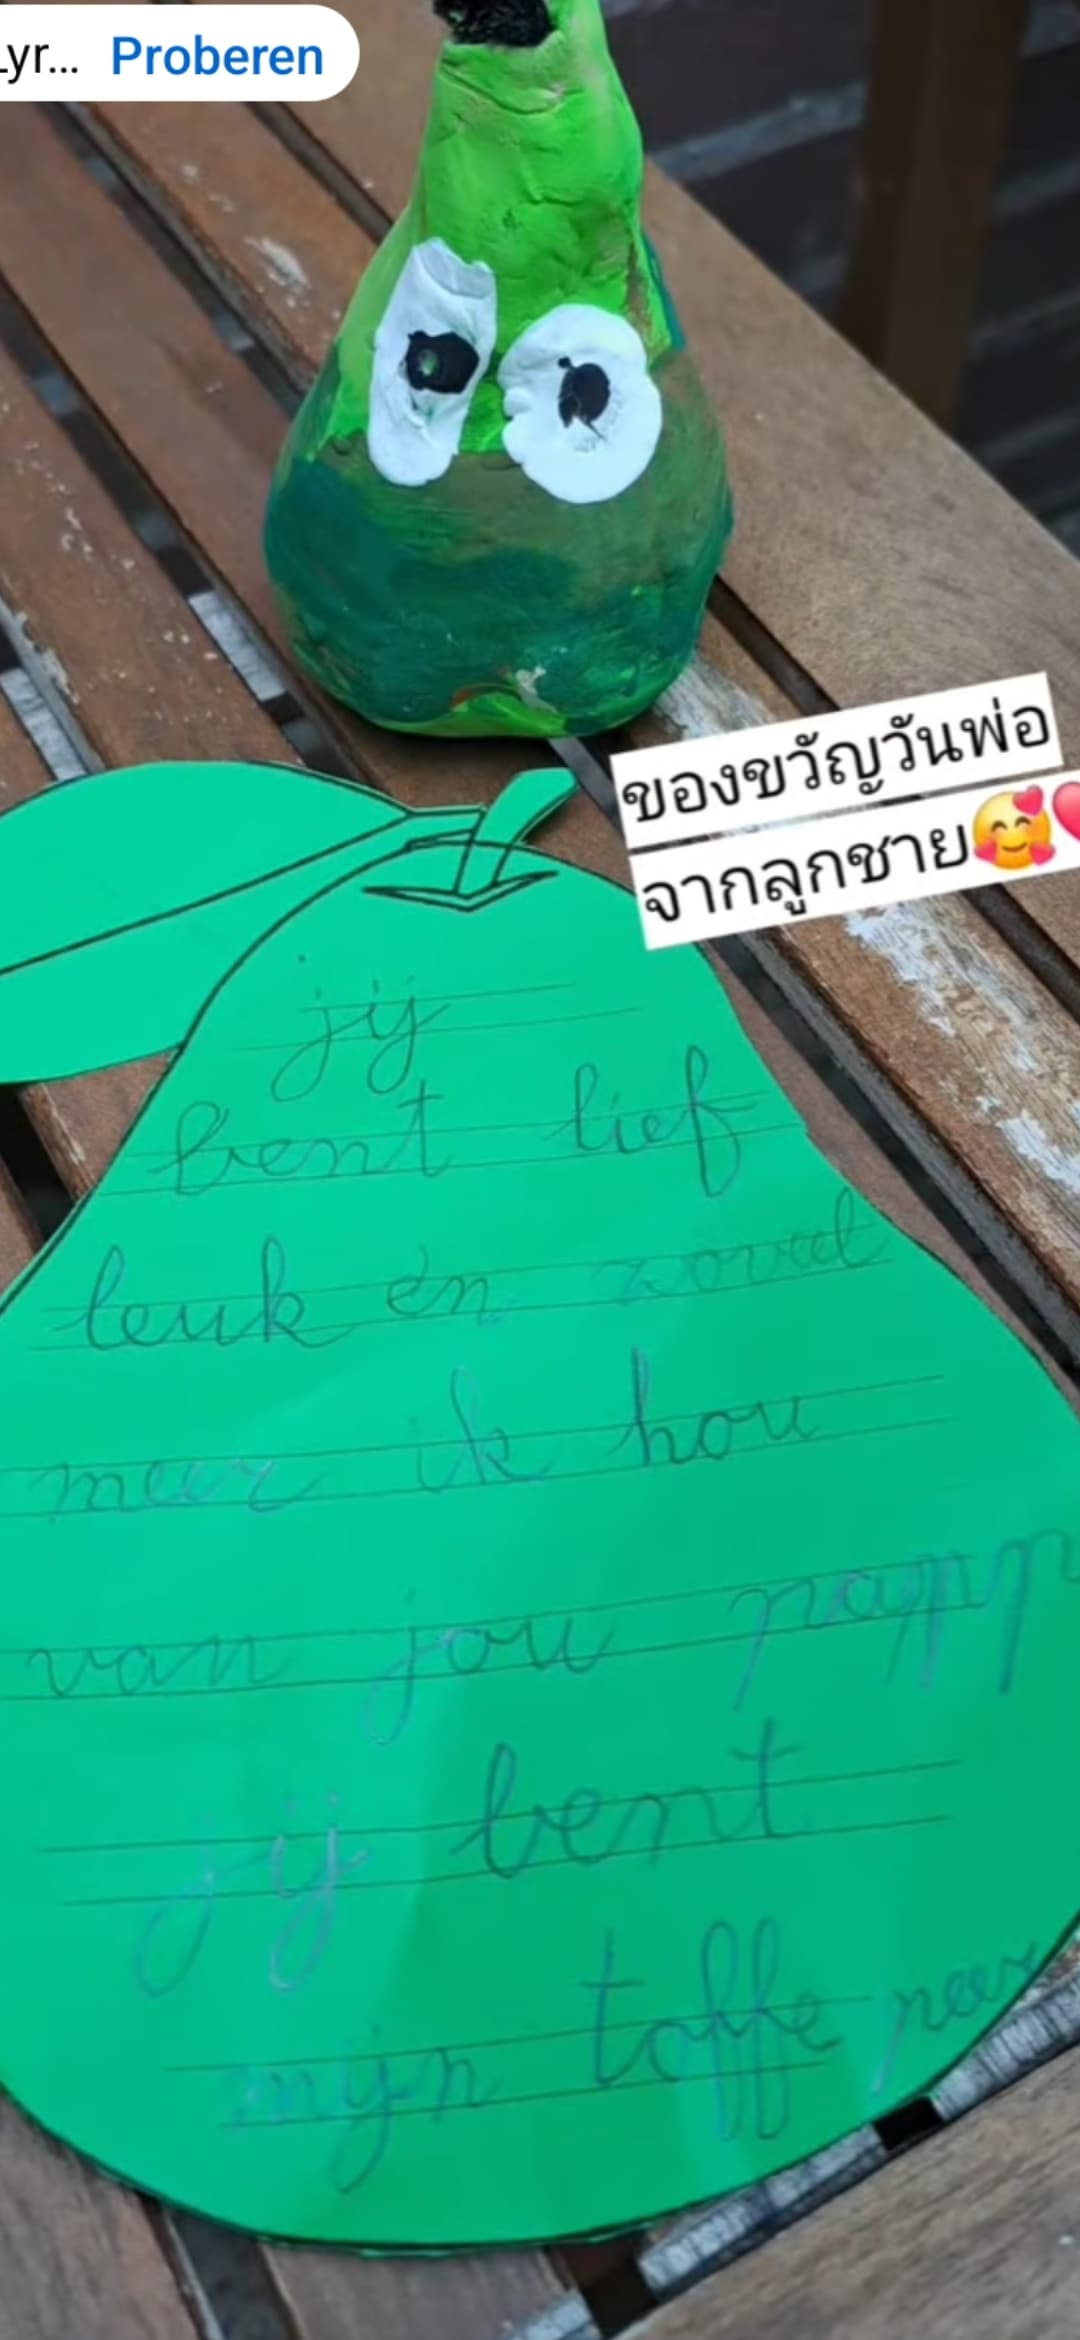 .yr... Proberen
ของขวัญวันพ่อ
จากลูกชาย🥰❤️
jij
bent lief
leuk en zoveel
meer ik hou
van jou papp
jij bent
mijn toffe peer